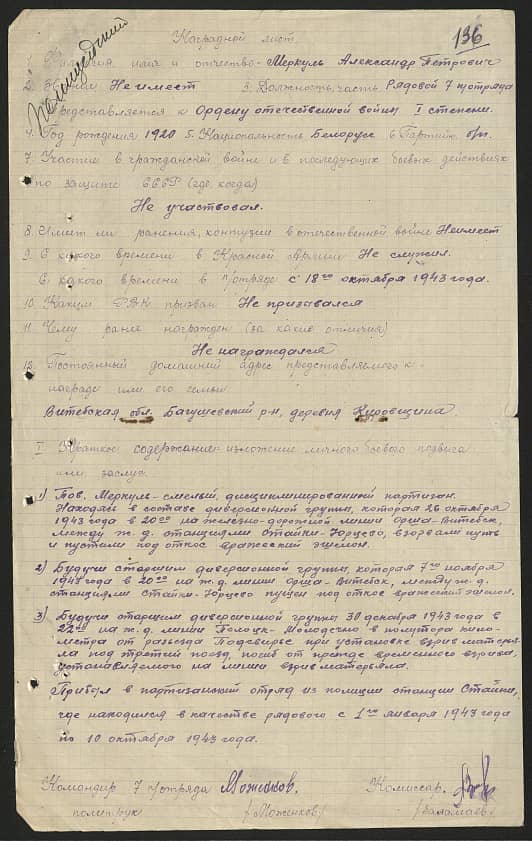 136
Наградной лист.
1. Фамилия, имя и отчество - Меркуль Александр Петрович
2. Звание Не имеет 3. Должность, часть. Рядовой 7 п/отряда
Представляется к Ордену отечественной войны I степени.
4. Год рождения 1920 5. Национальность Белорус 6 Партийн. б/п.
7. Участие в гражданской войне и в последующих боевых действиях
по защите СССР (где, когда)
Не участвовал.
8. Имеет ли ранения, контузии в отечественной войне Не имеет
9. С какого времени в Красной Армии Не служил.
С какого времени в п/отряде с 18го октября 1943 года.
10. Каким РВК призван Не призывался
11. Чему ранее награжден (за какие отличия)
Не награждался
12. Постоянный домашний адрес представляемого к
награде или его семьи
Витебская обл. Багушевский р-н, деревня Куровщина.
I Краткое содержание изложение личного боевого подвига
или заслуг.
1) Тов. Меркуль - смелый, дисциплинированной партизан.
Находясь в составе диверсионной группы, которая 26 октября
1943 года в 20 00 на железно-дорожной линии Орша-Витебск,
между ж.д. станциями Стайки-Юрцево, взорвали путь
и пустили под откос вражеский эшелон.
2) Будучи старшим диверсионной группы, которая 7го ноября
1943 года в 20 00 на ж.д. линии Орша-Витебск, между ж.д.
станциями Стайки-Юрцево пущен под откос вражеский эшелон.
3) Будучи старшим диверсионной группы 30 декабря 1943 года в
22 00 на ж.д. линии Полоцк-Молодечно в полутора кило-
метра от разъезда Подсвирье при установке взрив матерья-
ла под третий поезд, погиб от прежде временного взрива,
устанавляемого на линии взрив матерьяла.
Прибыл в партизанский отряд из полиции станции Стайки,
где находился в качестве рядового с 1го января 1943 года
по 10 октября 1943 года.
Командир 7 п/отряда Моженков. Комиссар.
политрук /Моженков/